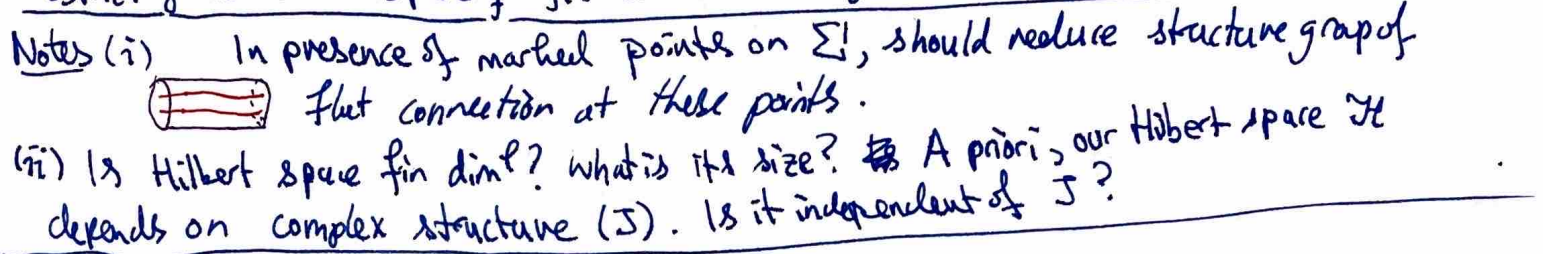 Notes (i) In presence of marked points on Σ, should reduce structure group of
flat connection at these points.
(ii) Is Hilbert space fin diml? What is its size? A priori, our Hilbert space ℋ
depends on complex structure (J). Is it independent of J?